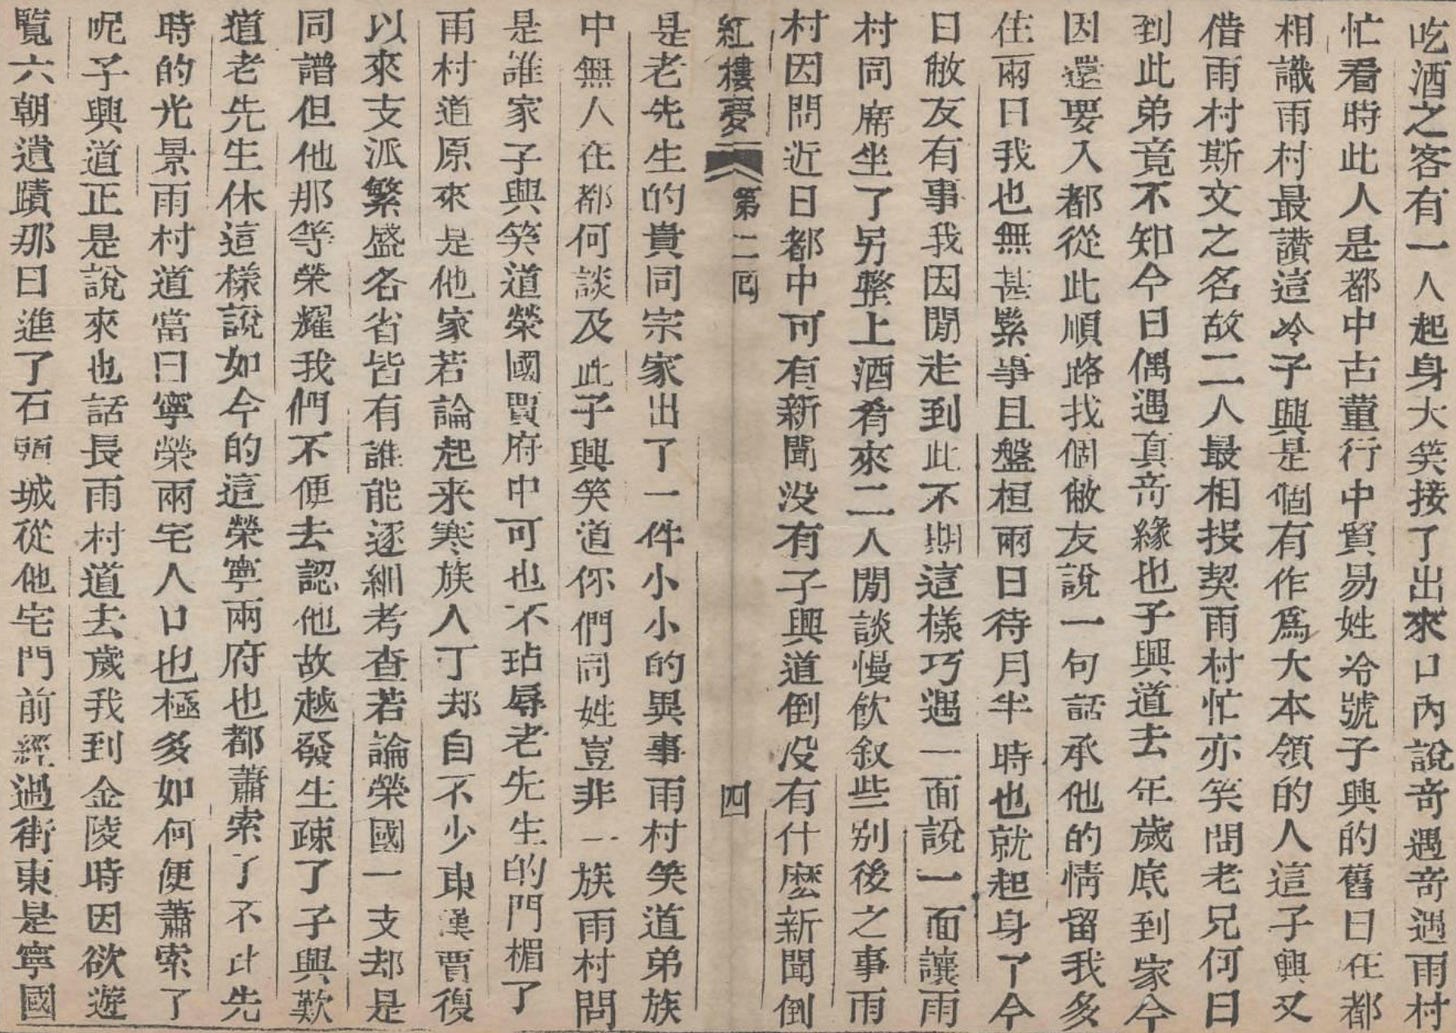 吃酒之客有一人起身大笑接了出來口內說奇遇奇遇雨村
忙看時此人是都中古董行中貿易姓冷號子興的舊日在都
相識雨村最讚這冷子興是個有作爲大本領的人這子興又
借雨村斯文之名故二人最相投契雨村忙亦笑問老兄何日
到此弟竟不知今日偶遇真奇緣也子興道去年歲底到家今
因還要入都從此順路找個敝友說一句話承他的情留我多
住兩日我也無甚緊事且盤桓兩日待月半時也就起身了今
日敝友有事我因閒走到此不期這樣巧遇一面說一面讓雨
村同席坐了另整上酒肴來二人閒談慢飲叙些別後之事雨
村因問近日都中可有新聞没有子興道倒没有什麽新聞倒
紅樓夢 第二囬 四
是老先生的貴同宗家出了一件小小的異事雨村笑道弟族
中無人在都何談及此子興笑道你們同姓豈非一族雨村問
是誰家子興笑道榮國賈府中可也不玷辱老先生的門楣了
雨村道原來是他家若論起来寒族人丁却自不少東漢賈復
以來支派繁盛各省皆有誰能逐細考查若論榮國一支却是
同譜但他那等榮耀我們不便去認他故越發生疎了子興歎
道老先生休這樣說如今的這榮寧兩府也都蕭索了不比先
時的光景雨村道當日寧榮兩宅人口也極多如何便蕭索了
呢子興道正是說來也話長雨村道去歲我到金陵時因欲遊
覽六朝遺蹟那日進了石頭城從他宅門前經過街東是寧國